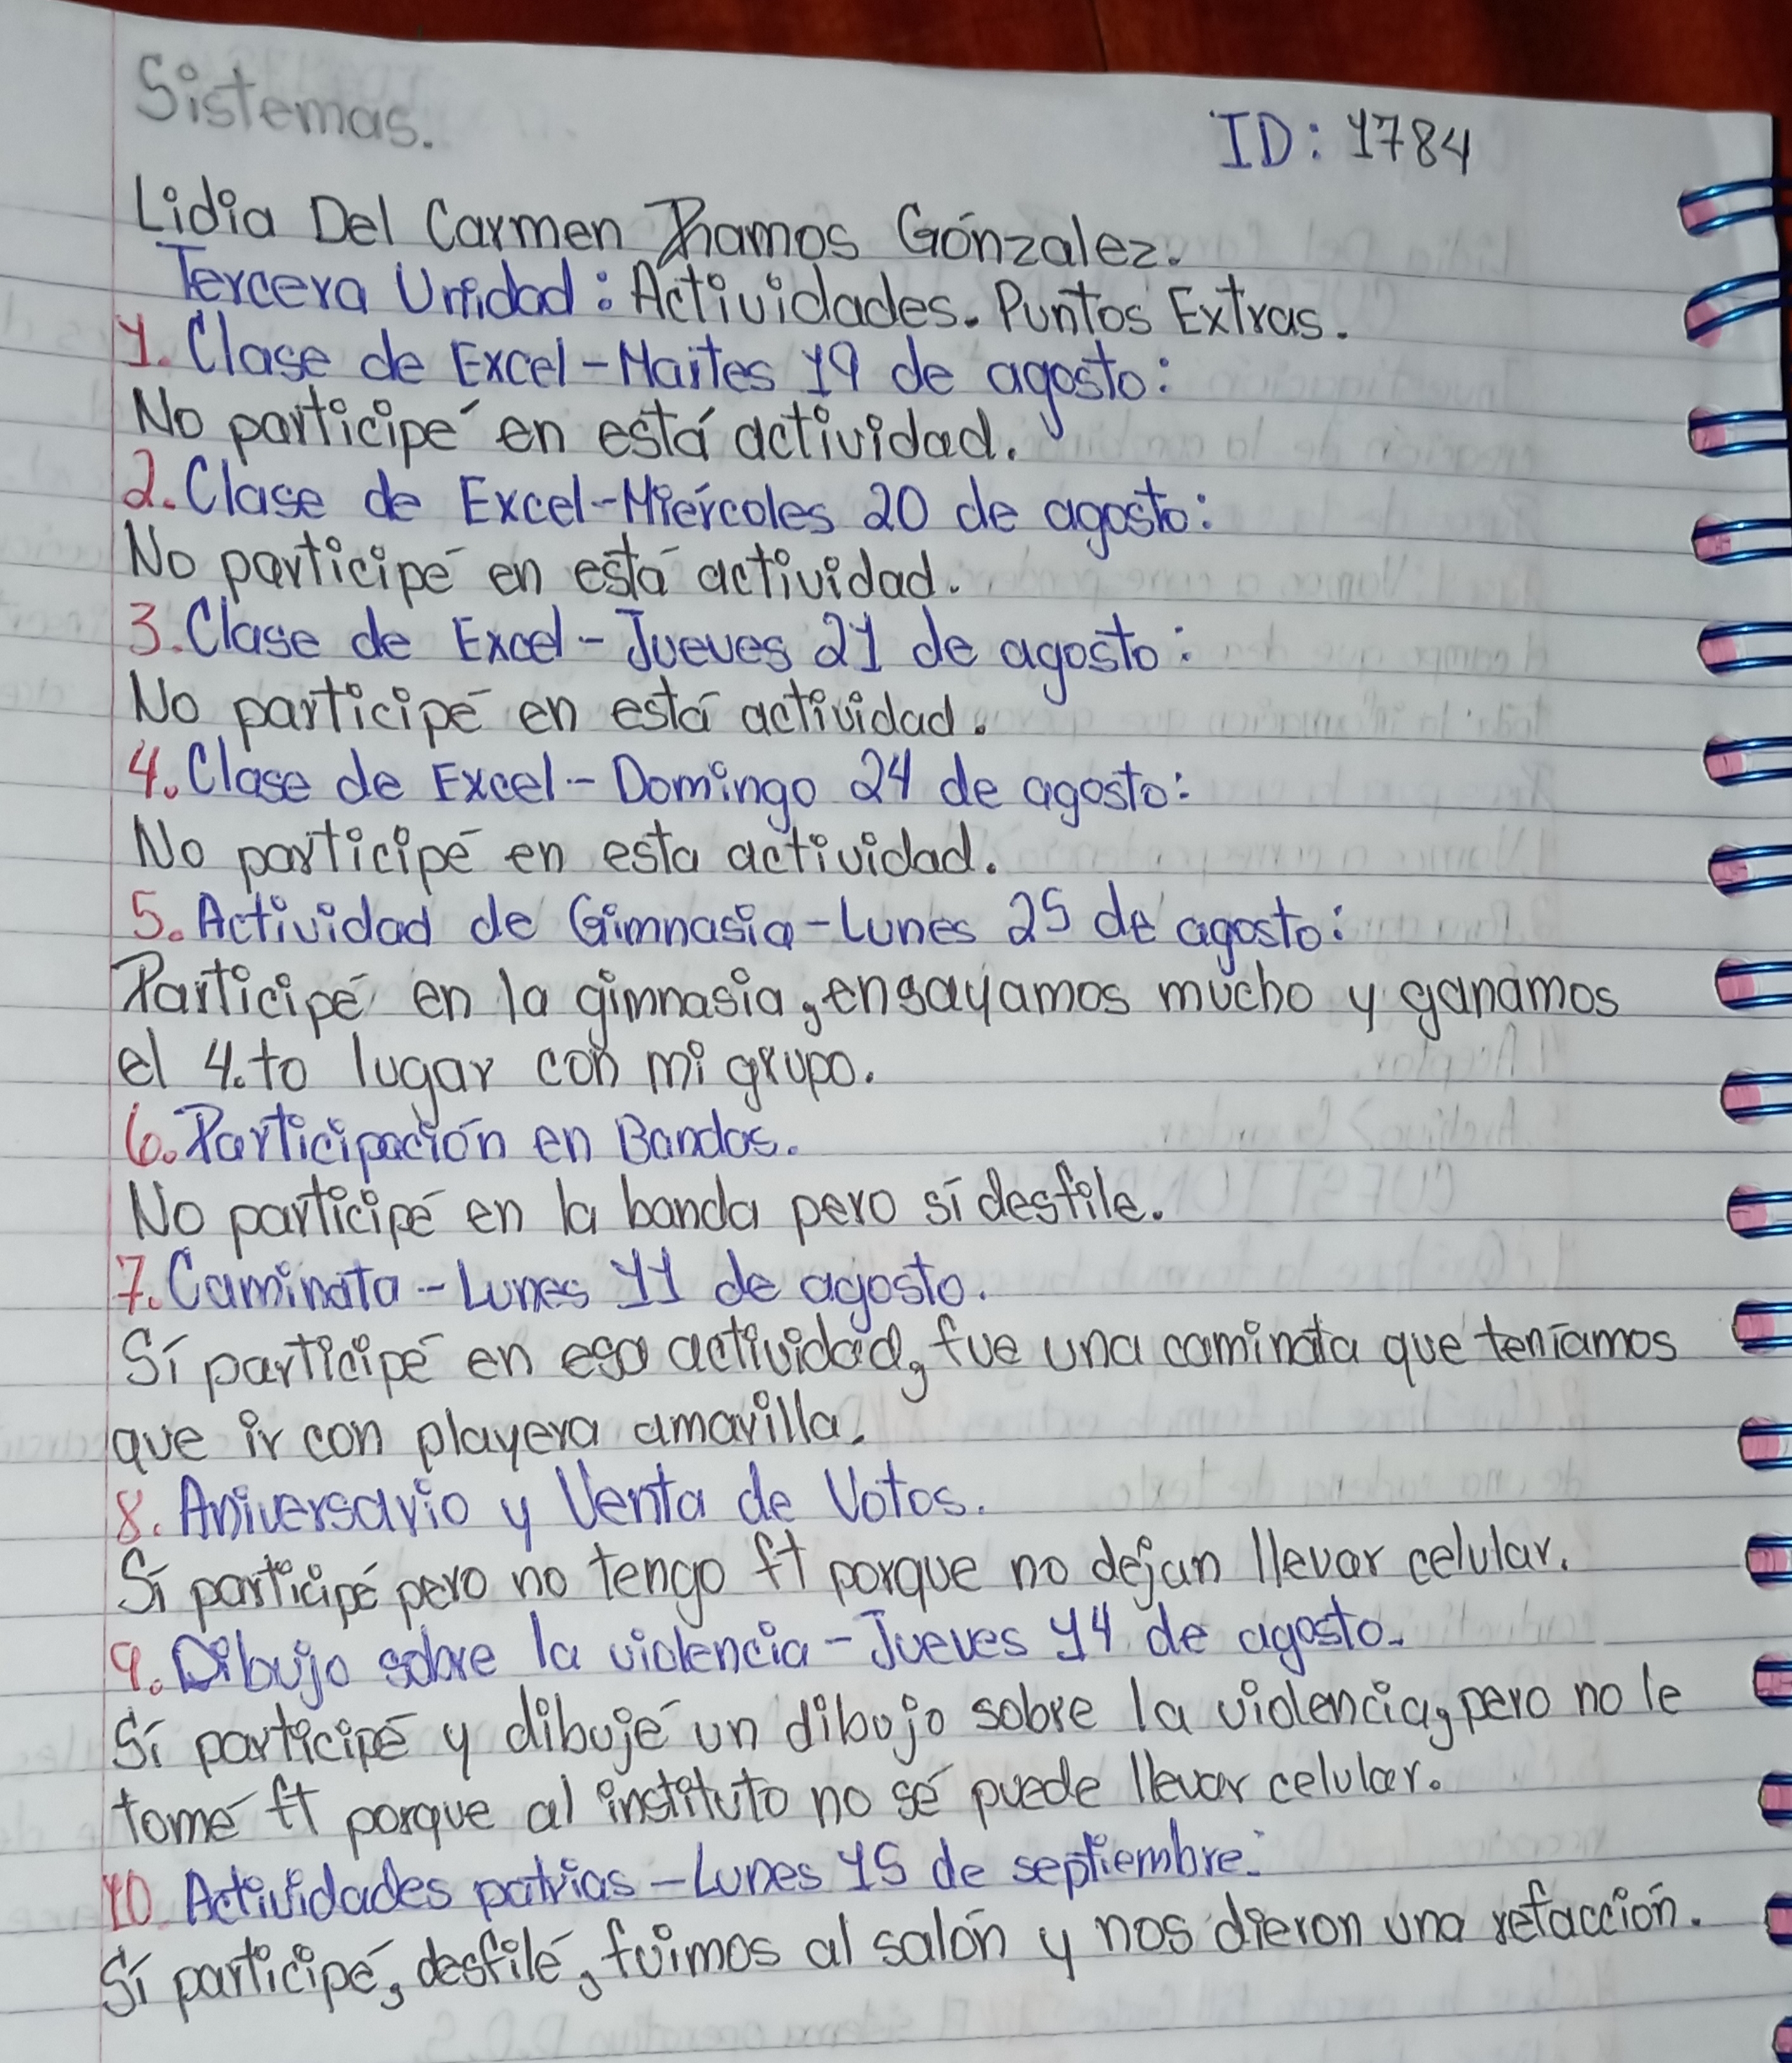 Sistemas.
ID: 1784
Lidia Del Carmen Ramos Gónzalez.
Tercera Unidad: Actividades. Puntos Extras.
1. Clase de Excel - Martes 19 de agosto:
No participé en está actividad.
2. Clase de Excel - Miércoles 20 de agosto:
No participé en está actividad.
3. Clase de Excel - Jueves 21 de agosto:
No participé en está actividad.
4. Clase de Excel - Domingo 24 de agosto:
No participé en esta actividad.
5. Actividad de Gimnasia - Lunes 25 de agosto:
Participé en la gimnasia, ensayamos mucho y ganamos
el 4.to lugar con mi grupo.
6. Participación en Bandas.
No participé en la banda pero sí desfile.
7. Caminata - Lunes 11 de agosto.
Sí participé en esa actividad, fue una caminata que teníamos
que ir con playera amarilla.
8. Aniversario y Venta de Votos.
Sí participé pero no tengo ft porque no dejan llevar celular.
9. Dibujo sobre la violencia - Jueves 14 de agosto.
Sí participé y dibujé un dibujo sobre la violencia, pero no le
tomé ft porque al instituto no sé puede llevar celular.
10. Actividades patrias - Lunes 15 de septiembre:
Sí participé, desfilé, fuimos al salón y nos dieron una refacción.